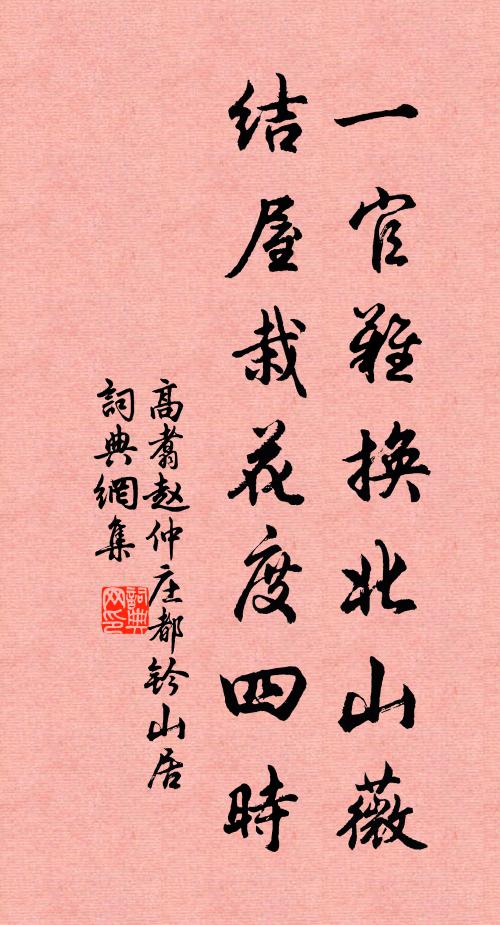 一官難換北山薇
结屋栽花度四時
高翥赵仲庄都钤山居
詞典網集
詞典
网印